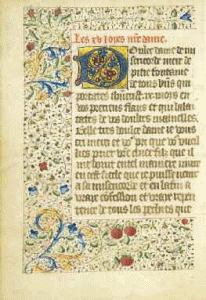 Les xv ioyes nre dame.
Doulce dame de mi
sericorde mere de
pitie fontaine
de tous biens qui
portastes ihucrist .ix. mois en
vos precieux flans et qui lalai
tates de vos doulces mamelles.
Belle tres doulce dame ie vous
cri merci et vo pri que vo vueil
lies prier vre chier filz que il
me
en cest siecle que ie puisse
a sa misericorde et en la fin a
vraye confession et vraye repen
tence de tous les pechies que